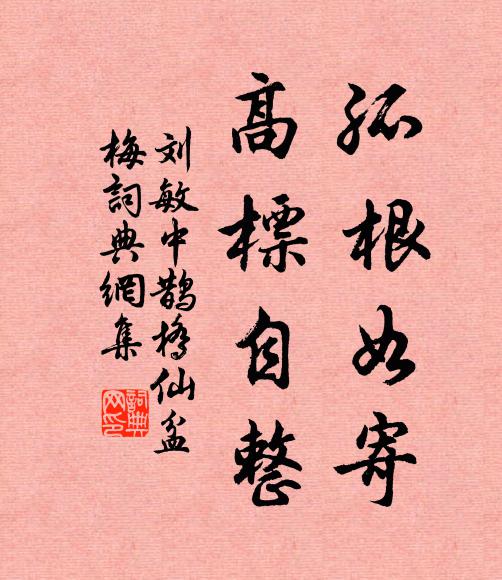 孤根如寄
高標自整
刘敏中鵲橋仙盆
梅詞典網集
詞典
网印